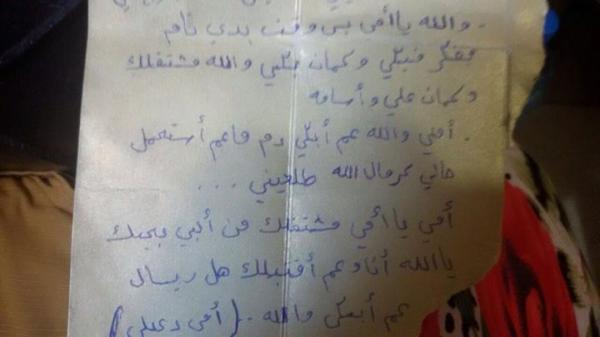 والله يا أمي بس وقت بدي نام
مفكر فيكي وكمان والله مشتقلك
وكمان علي وأسامه
. أمي والله عم أبكي دم ما عم أستحمل
حالي كرمال الله طلعيني ...
أمي يا أمي مشتقلك من ألبي بحبك
يا الله أنا وعم أكتبلك هل ريسال
عم أبكي والله . (أمي دعيلي)